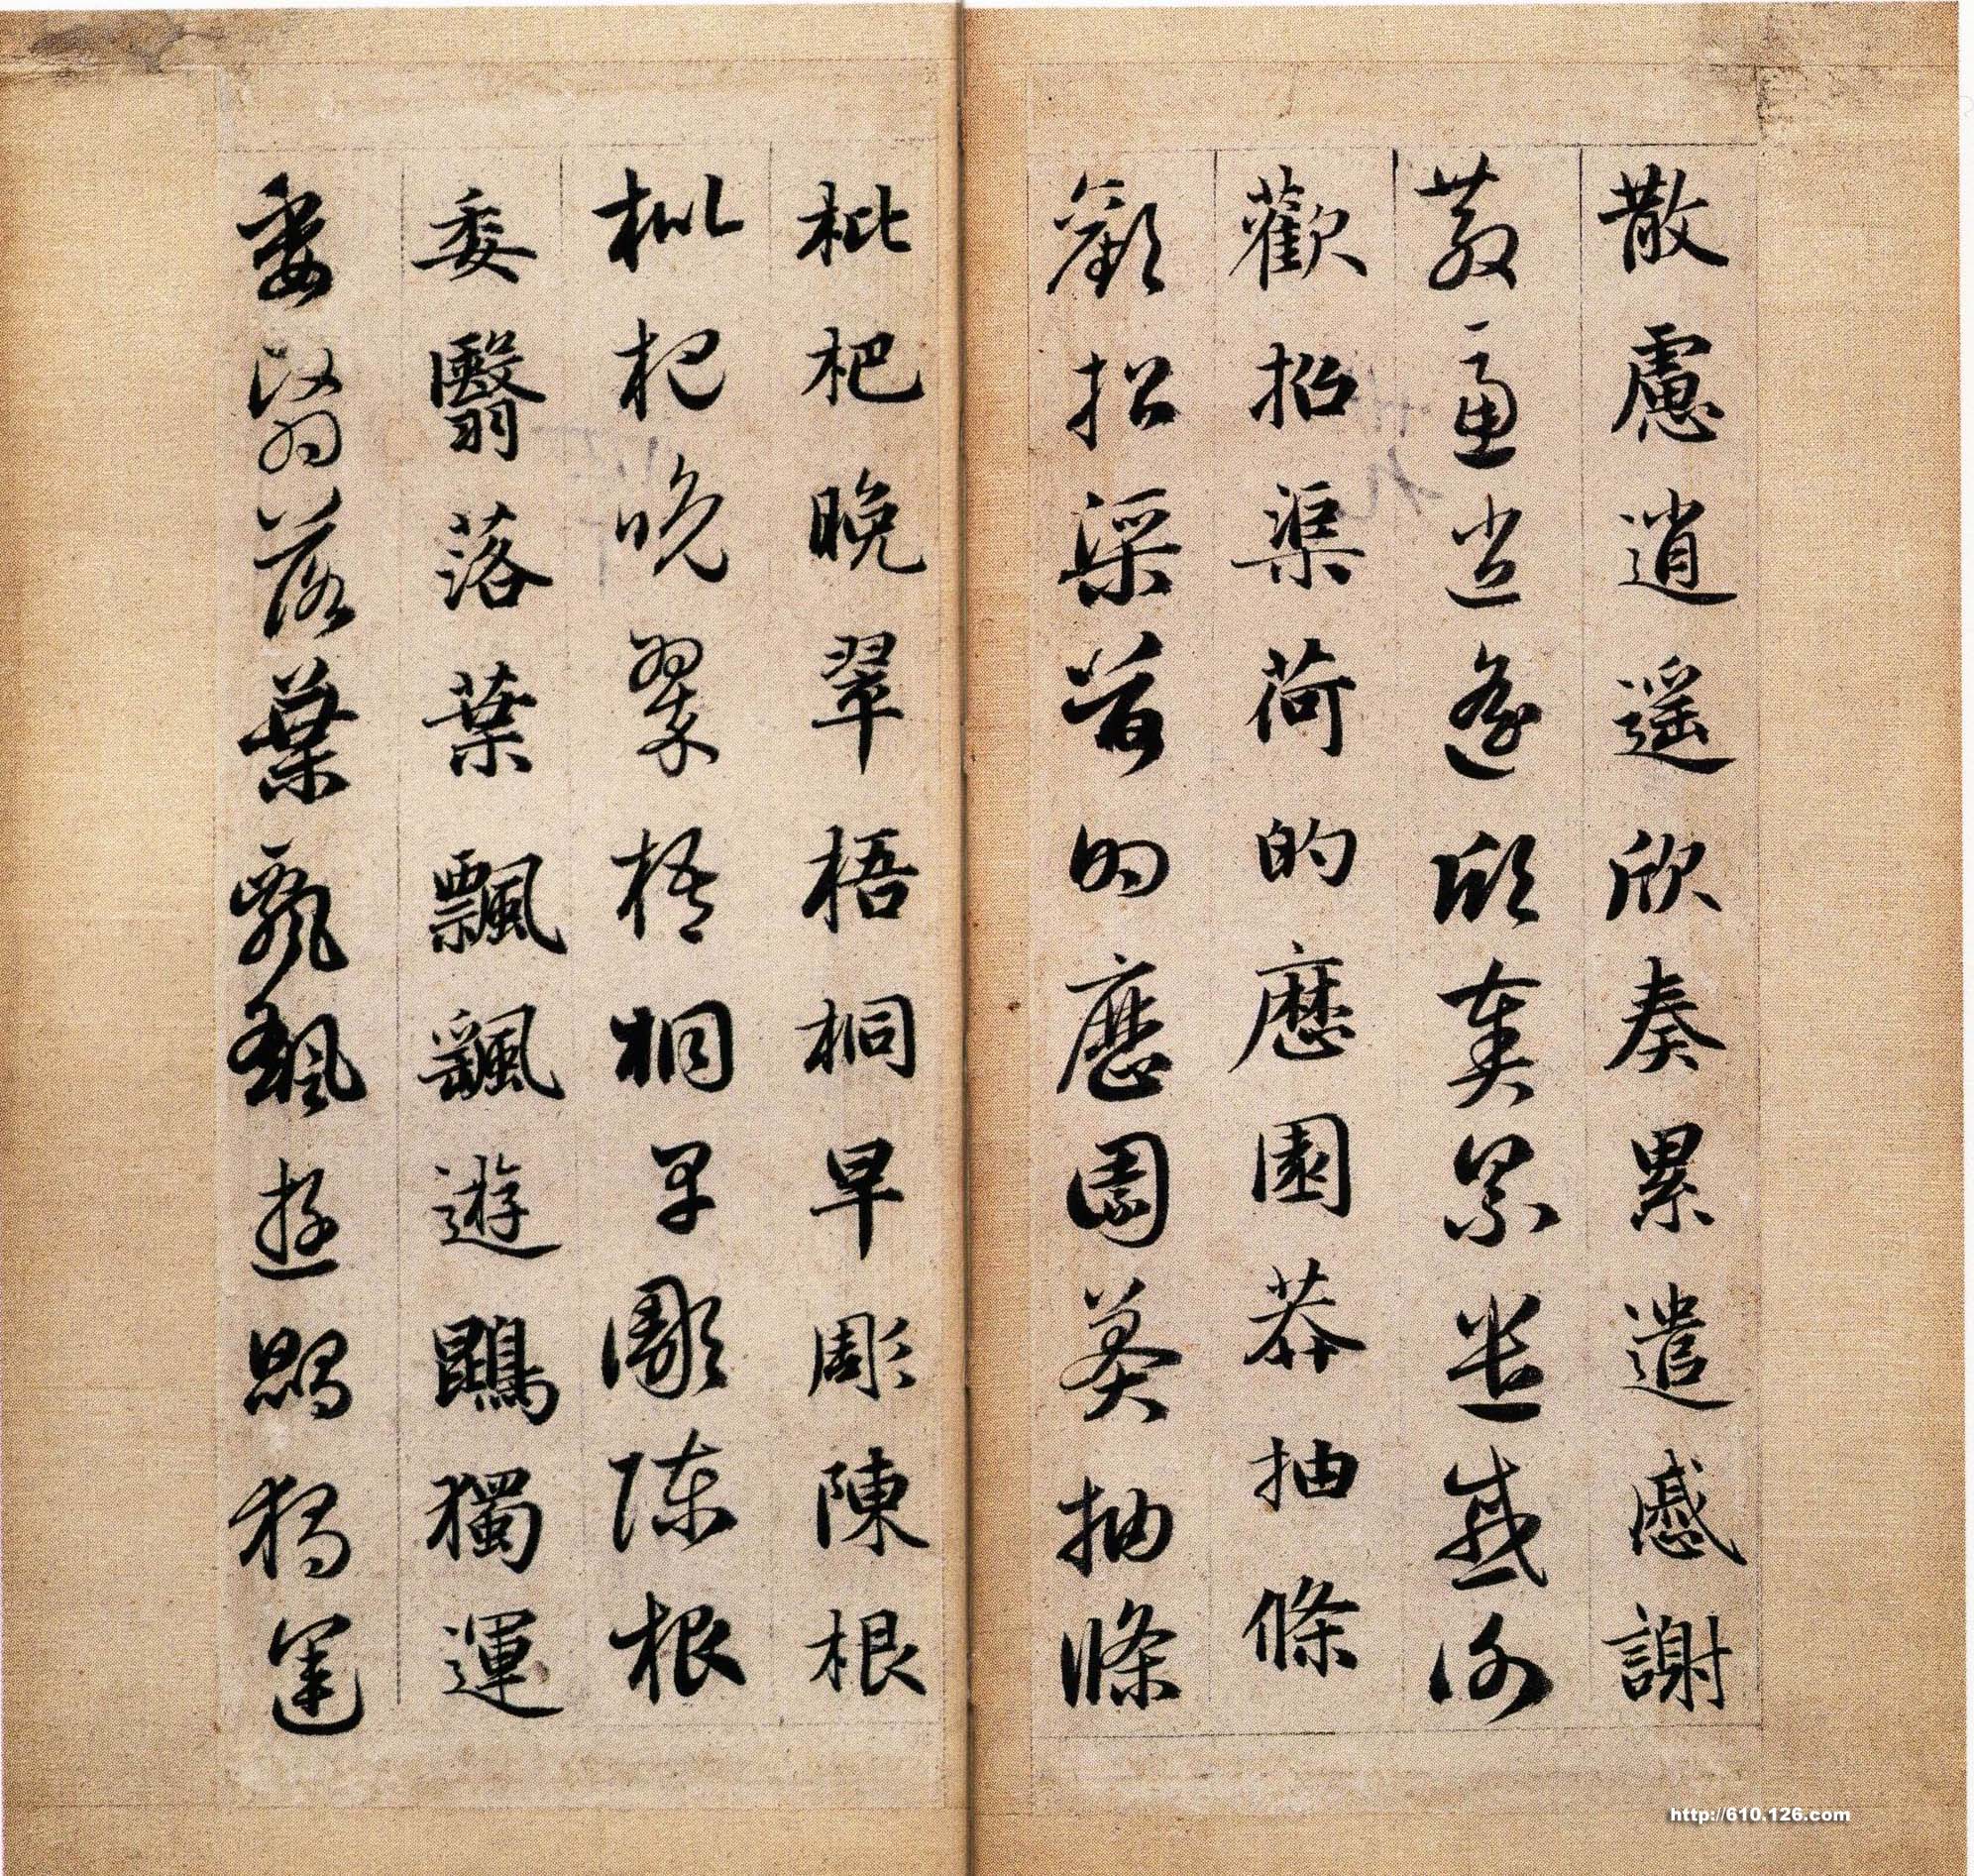 散慮逍遥欣奏累遣慼謝
散慮逍遥欣奏累遣慼謝
歡招渠荷的歷園莽抽條
歡招渠荷的歷園莽抽條
枇杷晚翠梧桐早彫陳根
枇杷晚翠梧桐早彫陳根
委翳落葉飄颻遊鵾獨運
委翳落葉飄颻遊鵾獨運
http://610.126.com